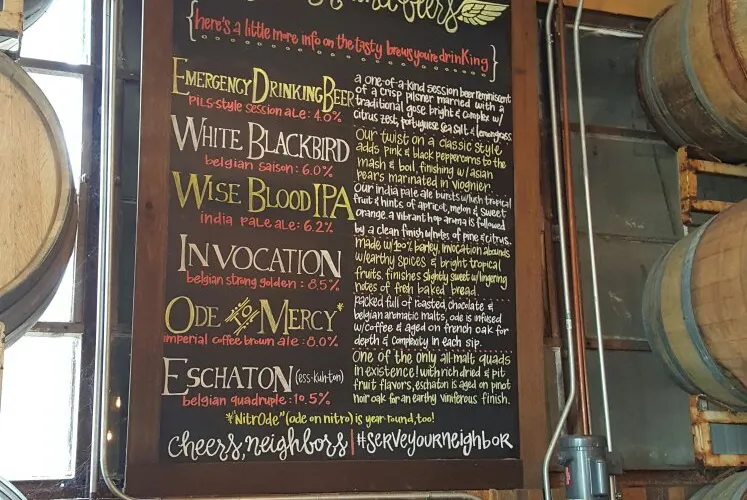 beers
{here's a little more info on the tasty brews you're drinking}
EMERGENCY DRINKING BEER
pils-style session ale: 4.0%
a one-of-a-kind session beer reminiscent
of a crisp pilsner married with a
traditional gose. bright & complex w/
citrus zest, portuguese sea salt & lemongrass.
WHITE BLACKBIRD
belgian saison: 6.0%
Our twist on a classic style
adds pink & black peppercorns to the
mash & boil, finishing w/asian
pears marinated in viognier.
WISE BLOOD IPA
india pale ale: 6.2%
Our india pale ale bursts w/lush tropical
fruit & hints of apricot, melon & sweet
orange. a vibrant hop aroma is followed
by a clean finish w/notes of pine & citrus.
INVOCATION
belgian strong golden: 8.5%
made w/100% barley, invocation abounds
w/earthy spices & bright tropical
fruits. finishes slightly sweet w/lingering
notes of fresh baked bread.
ODE TO MERCY*
imperial coffee brown ale: 8.0%
packed full of roasted, chocolate &
belgian aromatic malts, ode is infused
w/coffee & aged on french oak for
depth & complexity in each sip.
ESCHATON (ess-kuh-ton)
belgian quadruple: 10.5%
One of the only all-malt quads
in existence! with rich dried & pit
fruit flavors, eschaton is aged on pinot
noir oak for an earthy viniferous finish.
*"NitrOde" (ode on nitro) is year-round, too!
cheers, neighbors | #SERVEYOURNEIGHBOR